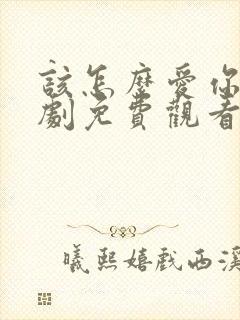 該怎麼愛你
劇免費觀看
曦熙嬉戲西溪